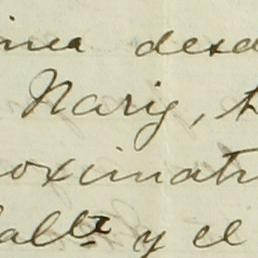 inea desd
Nariz, t
oximati
falte y el